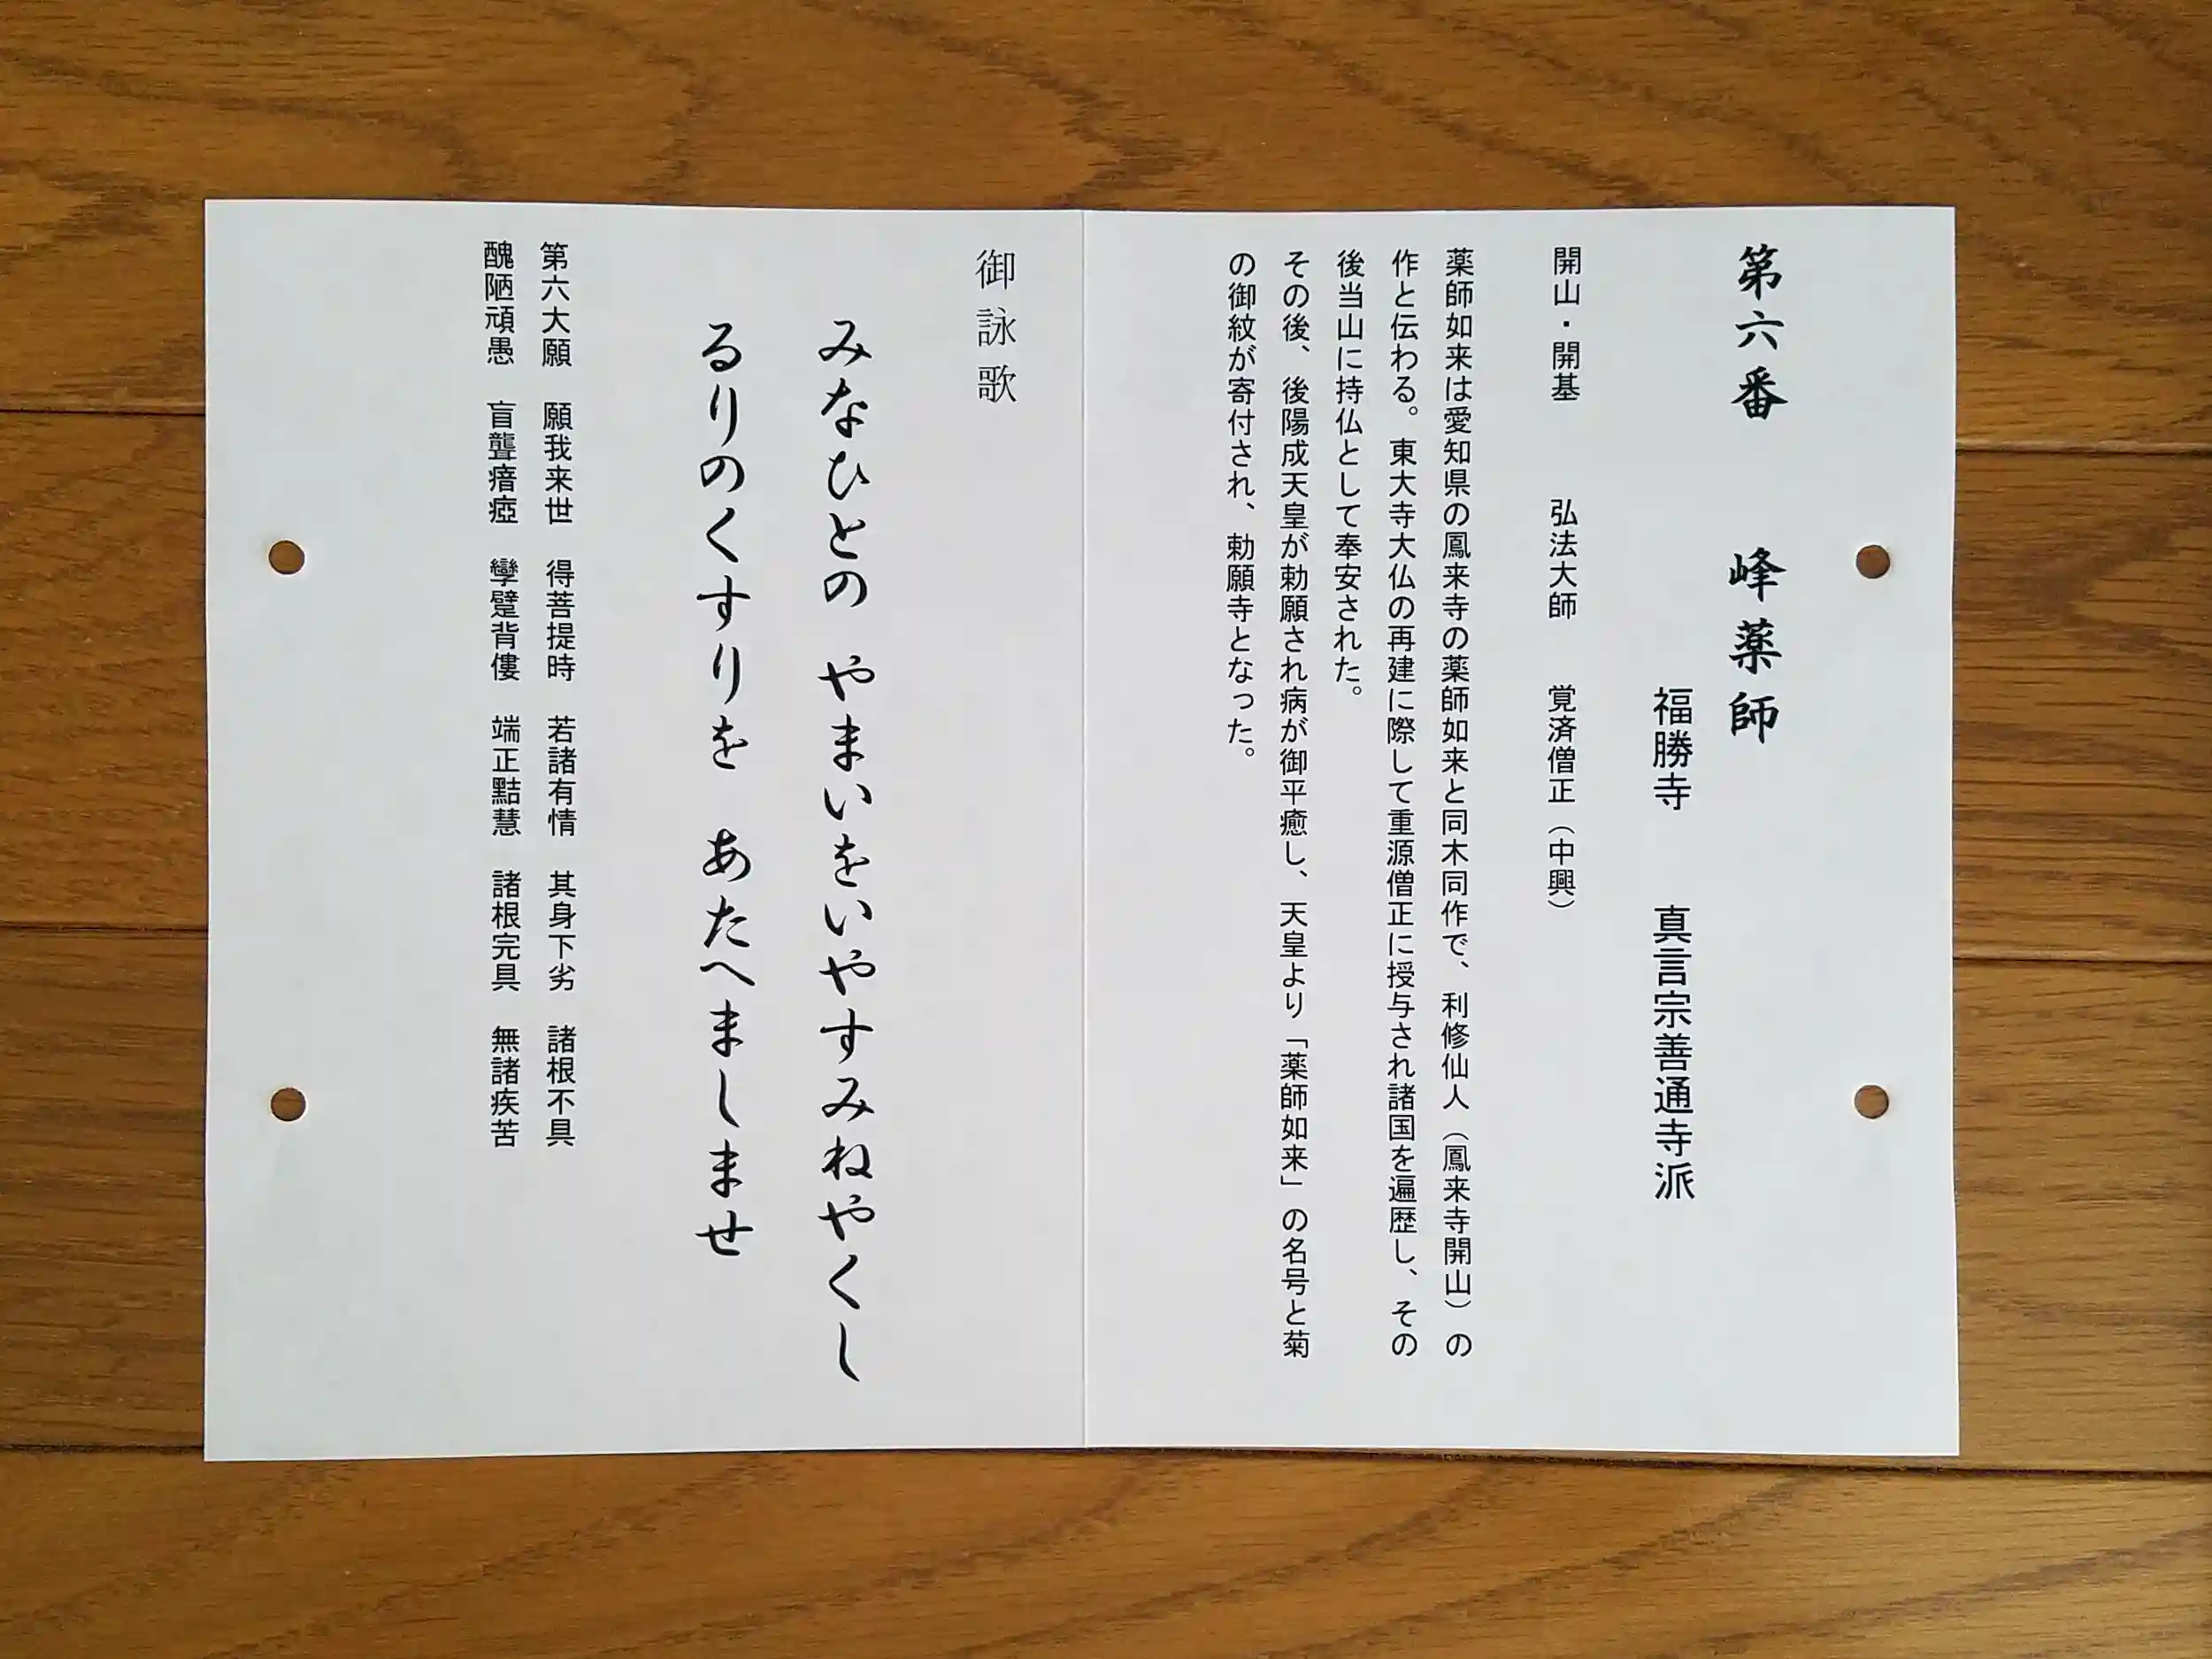 第六番　峰薬師
福勝寺　真言宗善通寺派
開山・開基　弘法大師　覚済僧正（中興）
薬師如来は愛知県の鳳来寺の薬師如来と同木同作で、利修仙人（鳳来寺開山）の
作と伝わる。東大寺大仏の再建に際して重源僧正に授与され諸国を遍歴し、その
後当山に持仏として奉安された。
その後、後陽成天皇が勅願され病が御平癒し、天皇より「薬師如来」の名号と菊
の御紋が寄付され、勅願寺となった。
御詠歌
みなひとの　やまいをいやすみねやくし
るりのくすりを　あたへましませ
第六大願　願我来世　得菩提時　若諸有情　其身下劣　諸根不具
醜陋頑愚　盲聾瘖瘂　攣躄背僂　端正黠慧　諸根完具　無諸疾苦